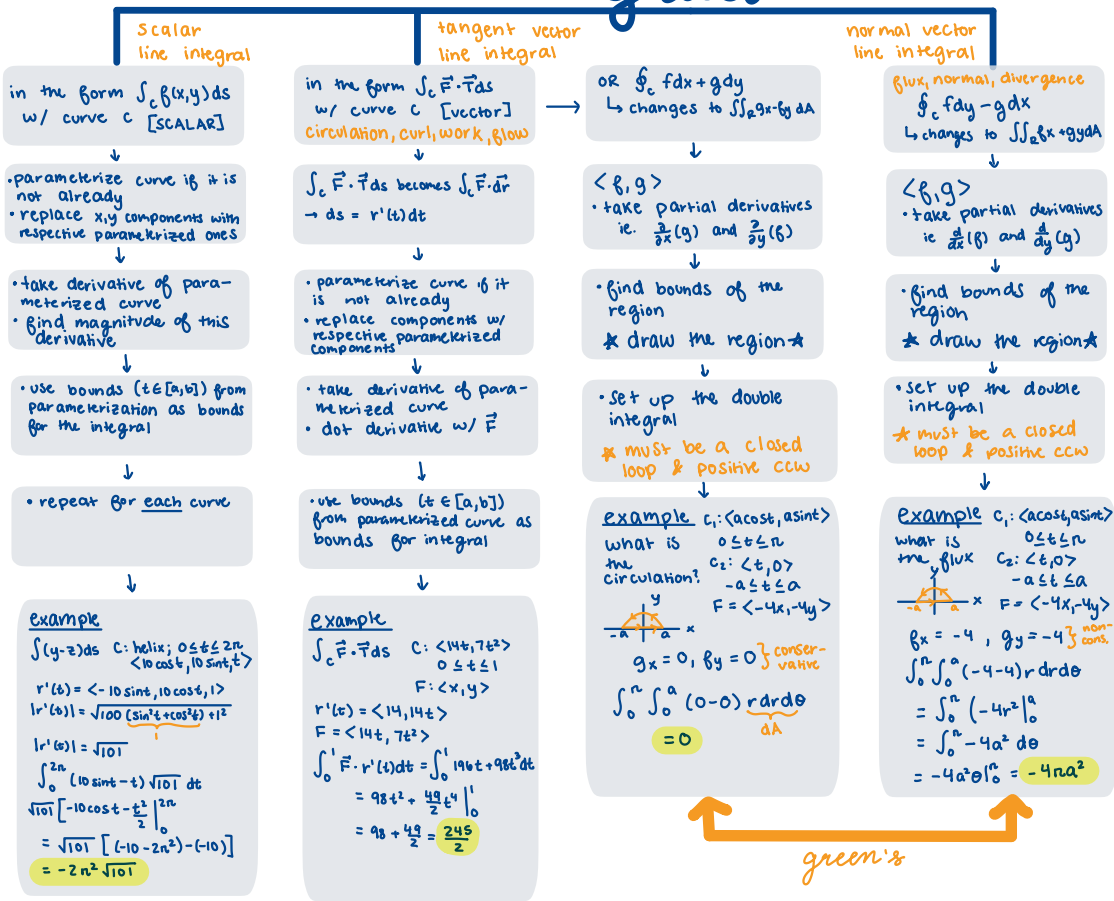 scalar
line integral
in the form ∫_c f(x,y)ds
w/ curve c [SCALAR]
•parameterize curve if it is
not already
• replace x,y components with
respective parameterized ones
•take derivative of para-
meterized curve
• find magnitude of this
derivative
•use bounds (t∈[a,b]) from
parameterization as bounds
for the integral
• repeat for each curve
example
∫(y-z)ds C: helix; 0≤t≤2π
<10cost,10sint,t>
r'(t) = <-10sint,10cost,1>
|r'(t)| = √100(sin²t+cos²t)+1²
1
|r'(t)| = √101
∫₀^2π (10sint-t) √101 dt
√101 [-10cost - t²/2 |₀^2π
= √101 [(-10-2π²)-(-10)]
= -2π²√101
tangent vector
line integral
in the form ∫_c F⃗·T⃗ds
w/ curve c [vector]
circulation, curl, work, flow
∫_c F⃗·T⃗ds becomes ∫_c F⃗·dr⃗
→ ds = r'(t)dt
• parameterize curve if it
is not already
• replace components w/
respective parameterized
components
• take derivative of para-
meterized curve
• dot derivative w/ F⃗
•use bounds (t∈[a,b])
from parameterized curve as
bounds for integral
example
∫_c F⃗·T⃗ds C: <14t,7t²>
0≤t≤1
F: <x,y>
r'(t) = <14,14t>
F = <14t,7t²>
∫₀¹ F⃗·r'(t)dt = ∫₀¹ 196t+98t³dt
= 98t² + 49/2 t⁴ |₀¹
= 98 + 49/2 = 245/2
OR ∮_c fdx+gdy
↳ changes to ∬_R gx-fy dA
<f,g>
• take partial derivatives
ie. ∂/∂x(g) and ∂/∂y(f)
• find bounds of the
region
★ draw the region★
• set up the double
integral
★ must be a closed
loop & positive ccw
example C₁: <acost,asint>
what is 0≤t≤π
the C₂: <t,0>
circulation? -a≤t≤a
y F = <-4x,-4y>
-a a x
gx = 0, fy = 0 } conser-
vative
∫₀^π ∫₀^a (0-0) rdrdθ
dA
=0
normal vector
line integral
flux, normal, divergence
∮_c fdy-gdx
↳ changes to ∬_R fx+gydA
<f,g>
• take partial derivatives
ie d/dx(f) and d/dy(g)
•find bounds of the
region
★ draw the region★
• set up the double
integral
★ must be a closed
loop & positive ccw
example C₁: <acost,asint>
what is 0≤t≤π
the flux C₂: <t,0>
y -a≤t≤a
-a a x F = <-4x,-4y>
fx = -4, gy = -4 } non-
cons.
∫₀^π ∫₀^a (-4-4) r drdθ
= ∫₀^π (-4r²|₀^a
= ∫₀^π -4a² dθ
= -4a²θ|₀^π = -4πa²
green's